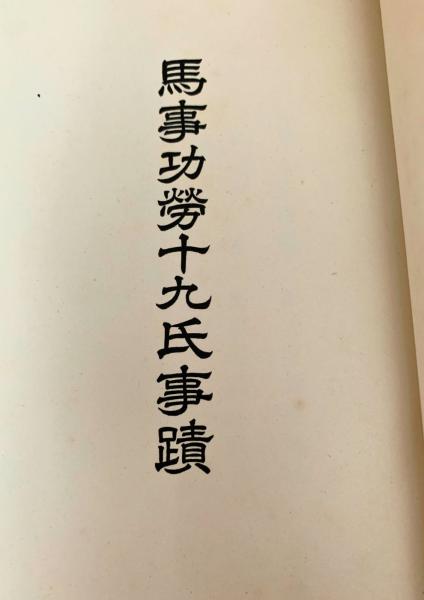 馬事功勞十九氏事蹟